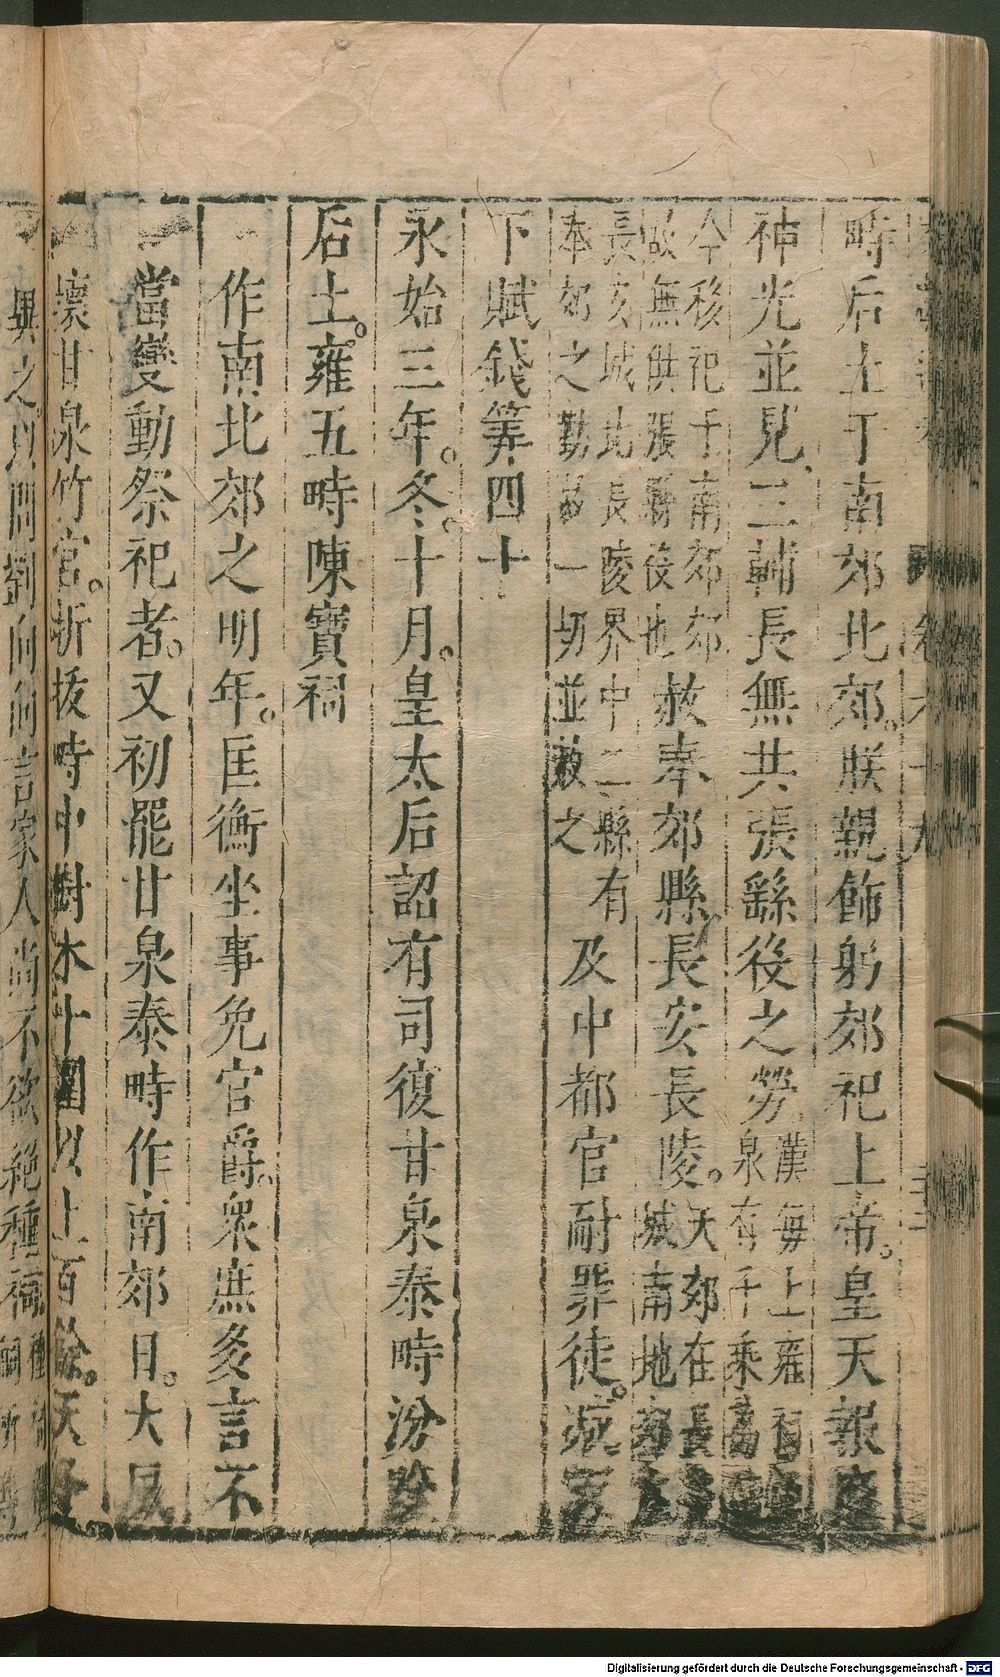 畤后土于南郊北郊。朕親飾躬郊祀上帝。皇天報應
神光並見三輔長無共張繇役之勞漢每上雍祠
泉有千乘萬
今移祀于南郊郊
故無供張繇役也赦奉郊縣長安長陵。天郊在長
城南地
長安城北長陵界中二縣有
奉郊之勤故一切並赦之及中都官耐罪徒。減天
下賦錢筭四十
永始三年。冬。十月。皇太后詔有司復甘泉泰畤汾陰
后土。雍五畤陳寶祠
作南北郊之明年。匡衡坐事免官爵。衆庶多言不
當變動祭祀者。又初罷甘泉泰畤作南郊日。大風
壞甘泉竹宮。折拔畤中樹木十圍以上百餘。天子
異之以問劉向向言家人尚不欲絕種祠
Digitalisierung gefördert durch die Deutsche Forschungsgemeinschaft - DFG